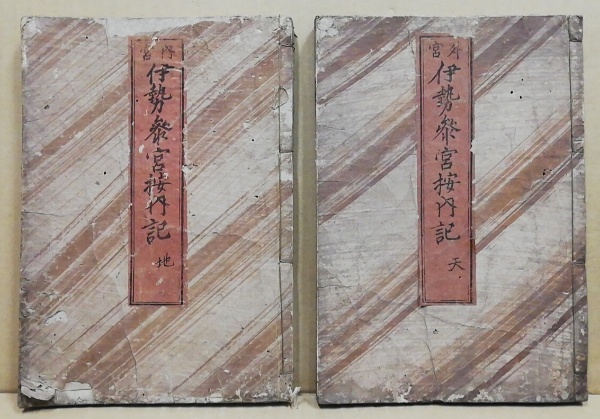 外宮
伊勢参宮按内記
天
内宮
伊勢参宮按内記
地